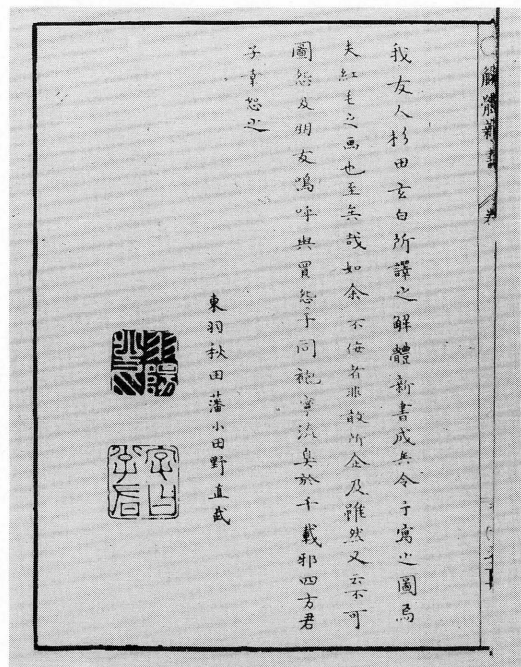 解體新書
我友人杉田玄白所譯之解體新書成矣令予寫之圖焉
夫紅毛之画也至矣哉如余不佞者非敢所企及雖然又云不可
圖怨及朋友嗚呼與買怨乎同袍寧流臭於千載邪四方君
子幸恕之
東羽秋田藩小田野直武